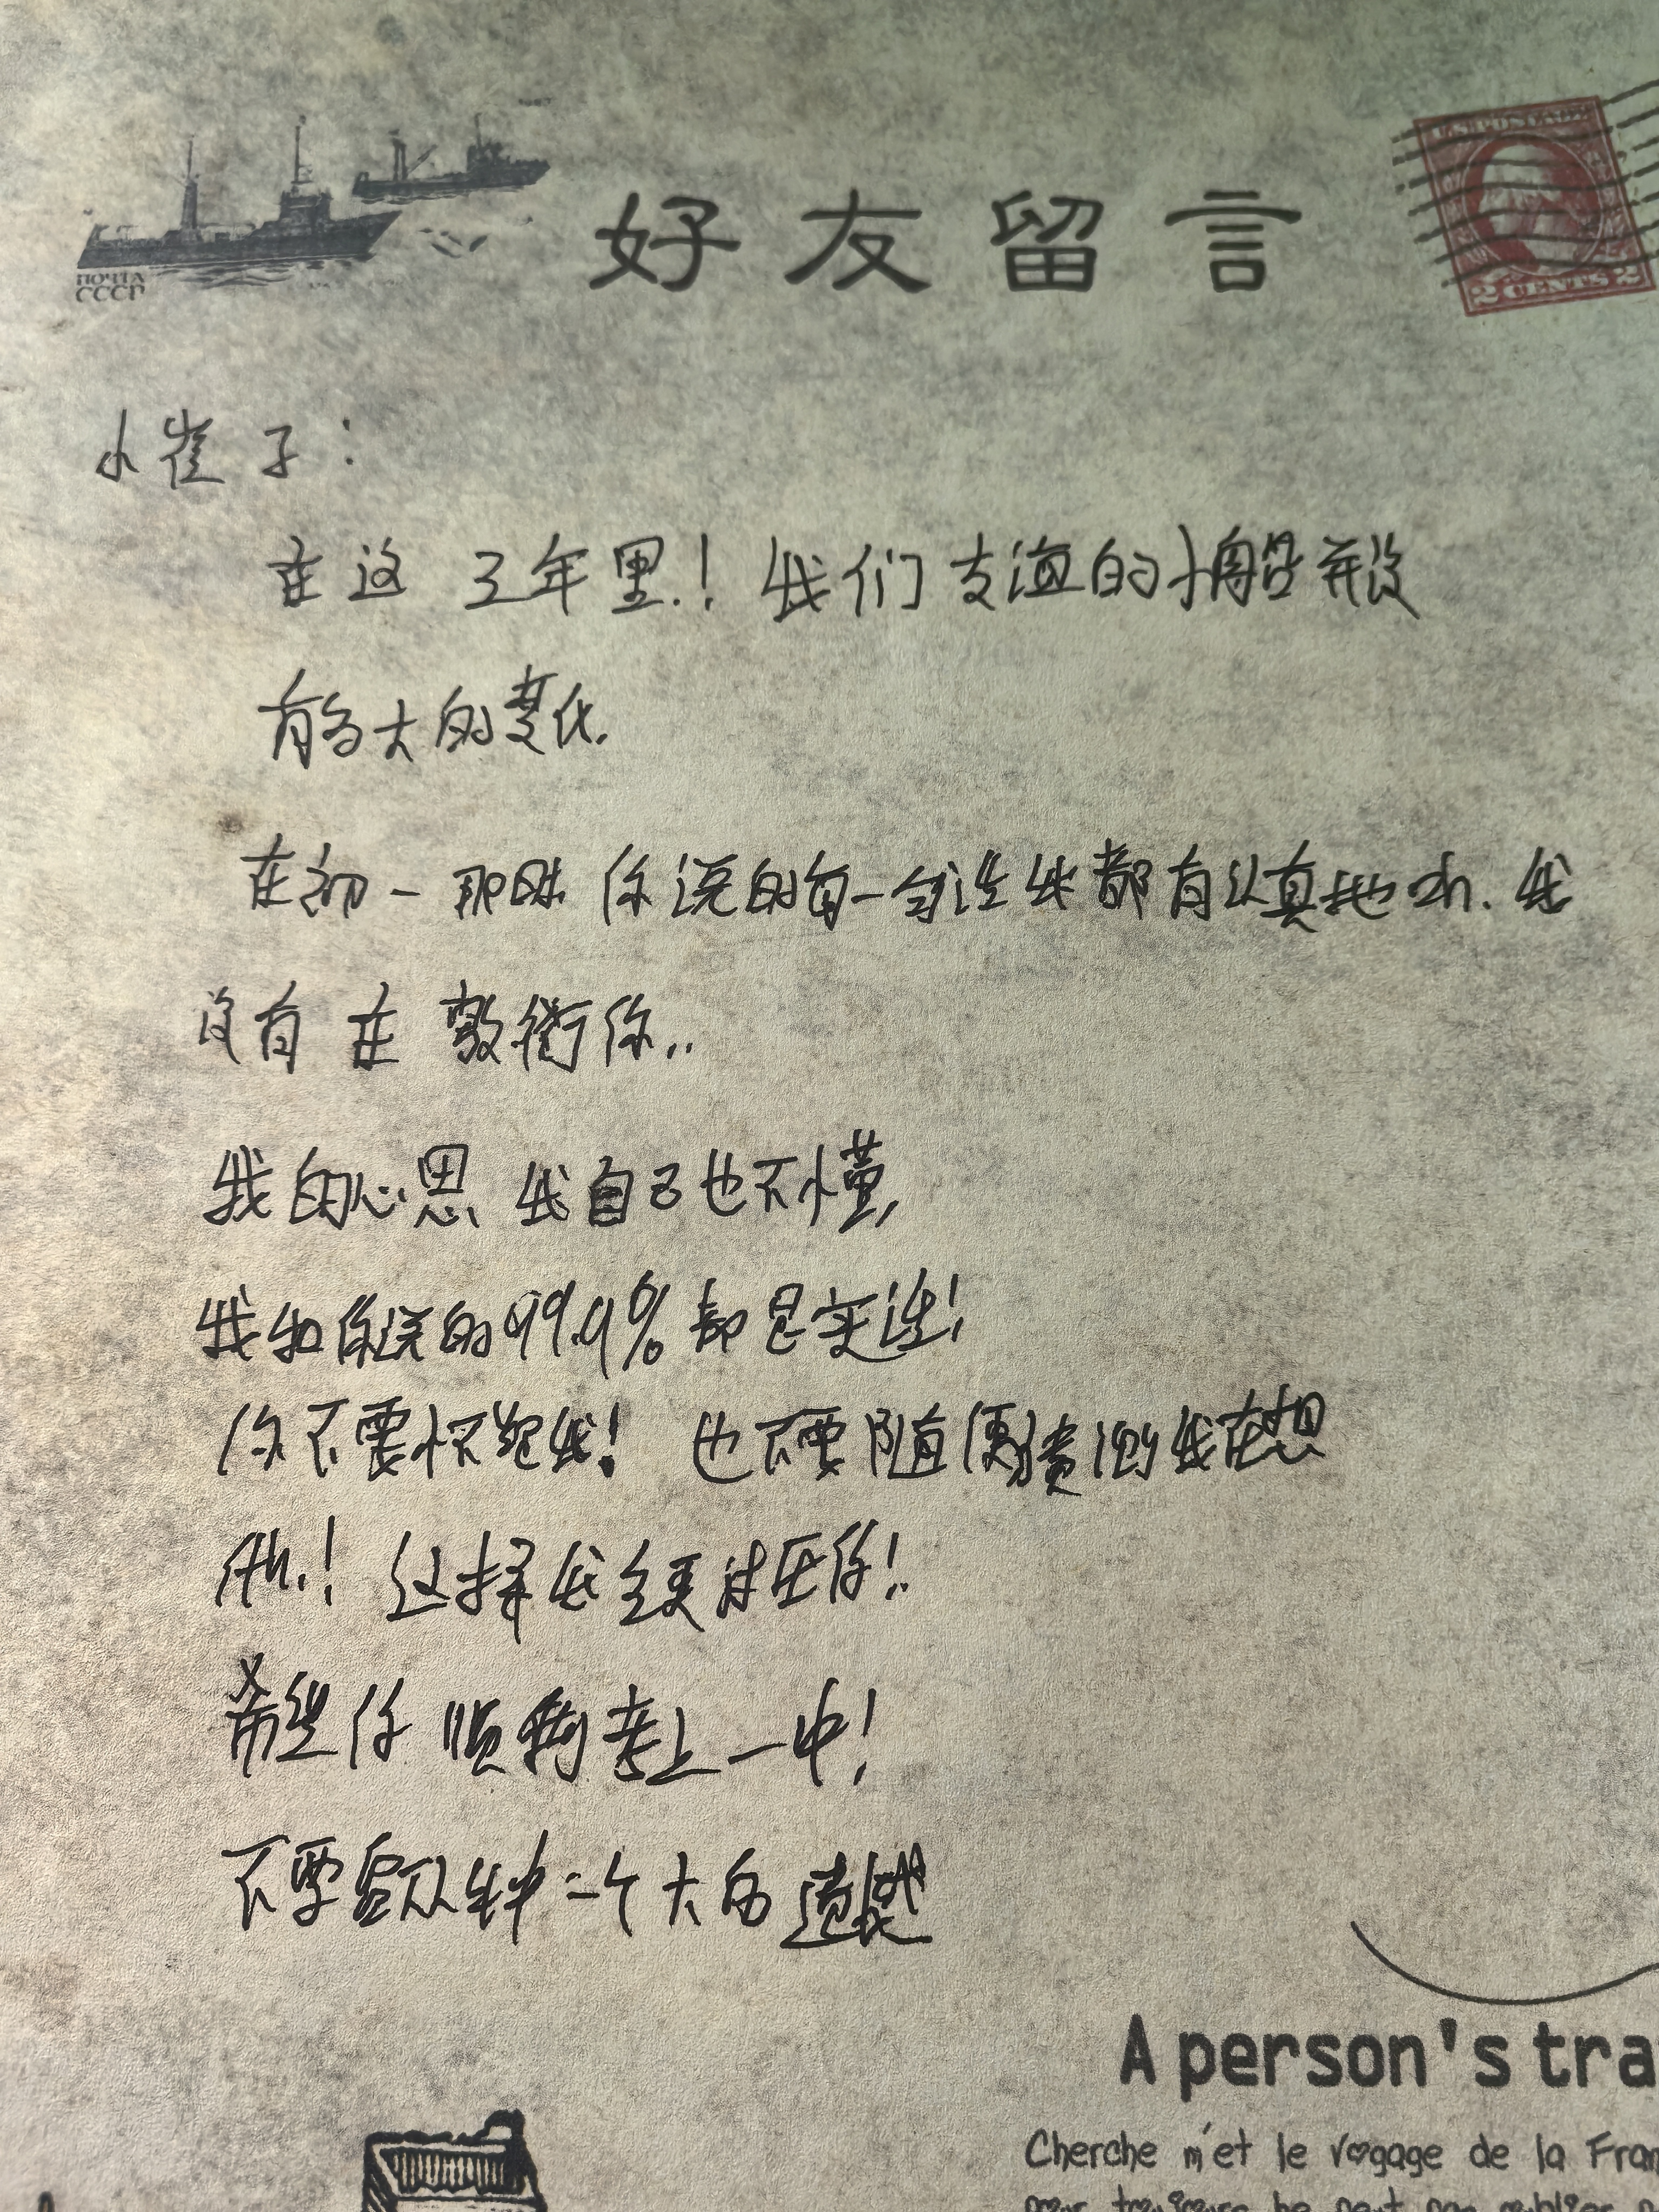 ПОЧТА
СССР
好友留言
U.S. POSTAGE
2 CENTS 2
小崔子：
在这三年里！我们友谊的小船并没
有多大的变化.
在初一那时你说的每一句话我都有认真地听.我
没有在敷衍你..
我的心思我自己也不懂,
我和你说的99.9%都是实话!
你不要怀疑我！也不要随便猜测我在想
什么！这样我会更讨厌你！
希望你顺利考上一中！
不要留下一个大的遗憾
A person's tra
Cherche m'et le vogage de la Fran